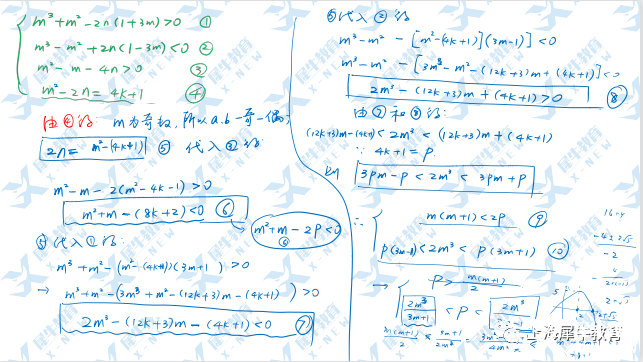 m³+m²-2n(1+3m)>0 ①
m³-m²+2n(1-3m)<0 ②
m²-m-4n>0 ③
m²-2n=4k+1 ④
由④得 m为奇数,所以a.b-奇-偶;
2n= m²-(4k+1) ⑤ 代入③得:
m²-m-2(m²-4k-1)>0
m²+m-(8k+2)<0 ⑥
m²+m-2p<0
⑤代入①得
m³+m²-(m²-(4k+1))(3m+1)>0
→ m³+m²-(3m³+m²-(12k+3)m-(4k+1))>0
2m³-(12k+3)m-(4k+1)<0 ⑦
⑤代入②得
m³-m²-[m²-(4k+1)](3m-1)<0
m³-m²-[3m³-m²-(12k+3)m+(4k+1)]<0
2m³-(12k+3)m+(4k+1)>0 ⑧
由⑦和⑧得:
(12k+3)m-(4k+1)<2m³<(12k+3)m+(4k+1)
∵ 4k+1=p
则 3pm-p<2m³<3pm+p
∴ m(m+1)<2p ⑨
p(3m-1)<2m³<p(3m+1) ⑩
→ p>m(m+1)/2
2m³/(3m+1)<p<2m³/
犀牛教育